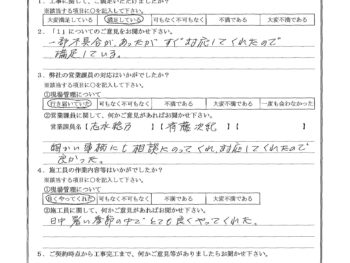 1. 工事に関して、ご満足いただけましたか？
※該当する項目に○を記入して下さい。
大変満足している 満足している 可も無く不可も無く 不満である 大変不満である
2. 「1」についてのご意見をお聞かせ下さい。
一部不具合が、あったが すぐ対応してくれたので
満足している。
3. 弊社の営業課員の対応はいかがでしたか？
※該当する項目に○を記入して下さい。
①現場管理について
行き届いていた 可も無く不可も無く 不満である 大変不満である 一度も会わなかった
②営業課員に関して、何かご意見があればお聞かせ下さい。
営業課員名【 】【 】
細かい事柄にも 相談にのってくれ、対応してくれたので
良かった。
4. 施工員の作業内容等はいかがでしたか？
※該当する項目に○を記入して下さい。
①現場管理について
良くやってくれた 可も無く不可も無く 不満である 大変不満である
②施工員に関して、何かご意見があればお聞かせ下さい。
日中 暑い季節の中で とても良くやってくれた。
5. ご契約時点から工事完工まで、何かご意見等がありましたらお聞かせ下さい。